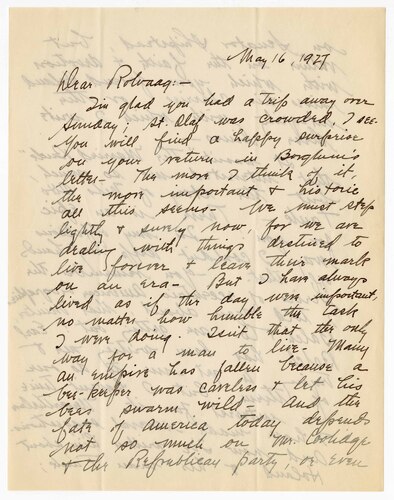 May 16, 1927
Dear Rolvaag:-
I'm glad you had a trip away over
Sunday; St. Olaf was crowded, I see.
You will find a happy surprise
on your return in Borglum's
letter- The more I think of it,
the more important & historic
all this seems- We must step
lightly & surely now, for we are
dealing with things destined to
live forever & leave their mark
on an era- But I have always
lived as if the day were important,
no matter how humble the task
I were doing. Isn't that the only
way for a man to live- Many
an empire has fallen because a
bee-keeper was careless & let his
bees swarm wild- and the
fate of America today depends
not so much on Mr. Coolidge
& the Republican party, or even